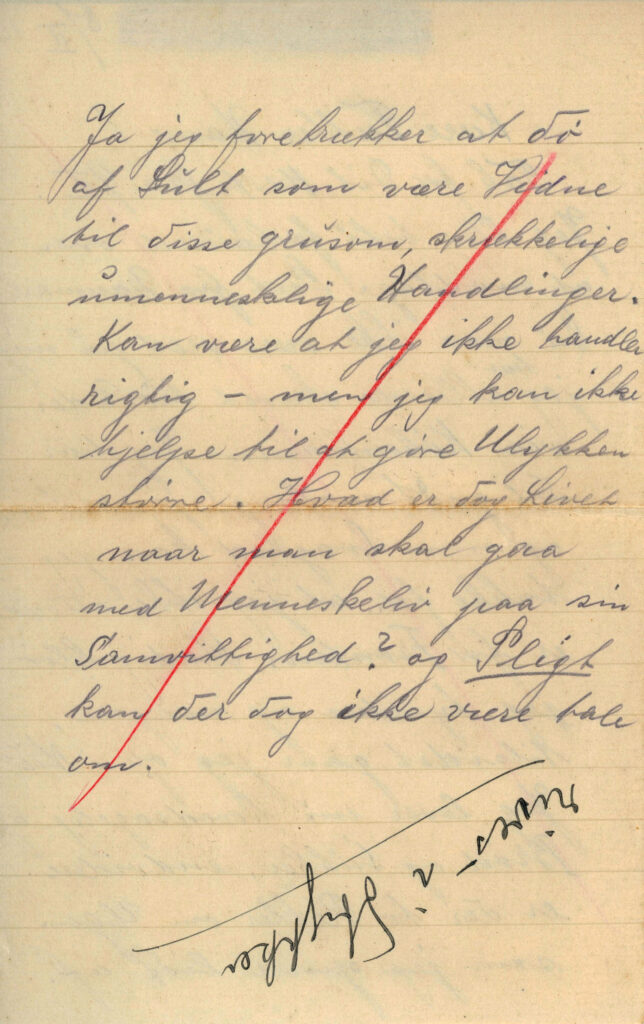 Ja jeg foretrækker at dö
af Sült som være Vidne
til disse grüsom, skrækkelige
ümennesklige Handlinger.
Kan være at jeg ikke handler
rigtig – men jeg kan ikke
hjelpe til at göre Ulykken
större. Hvad er dog Livet
naar man skal gaa
med Menneskeliv paa sin
Samvittighed? og Pligt
kan der dog ikke være tale
om.